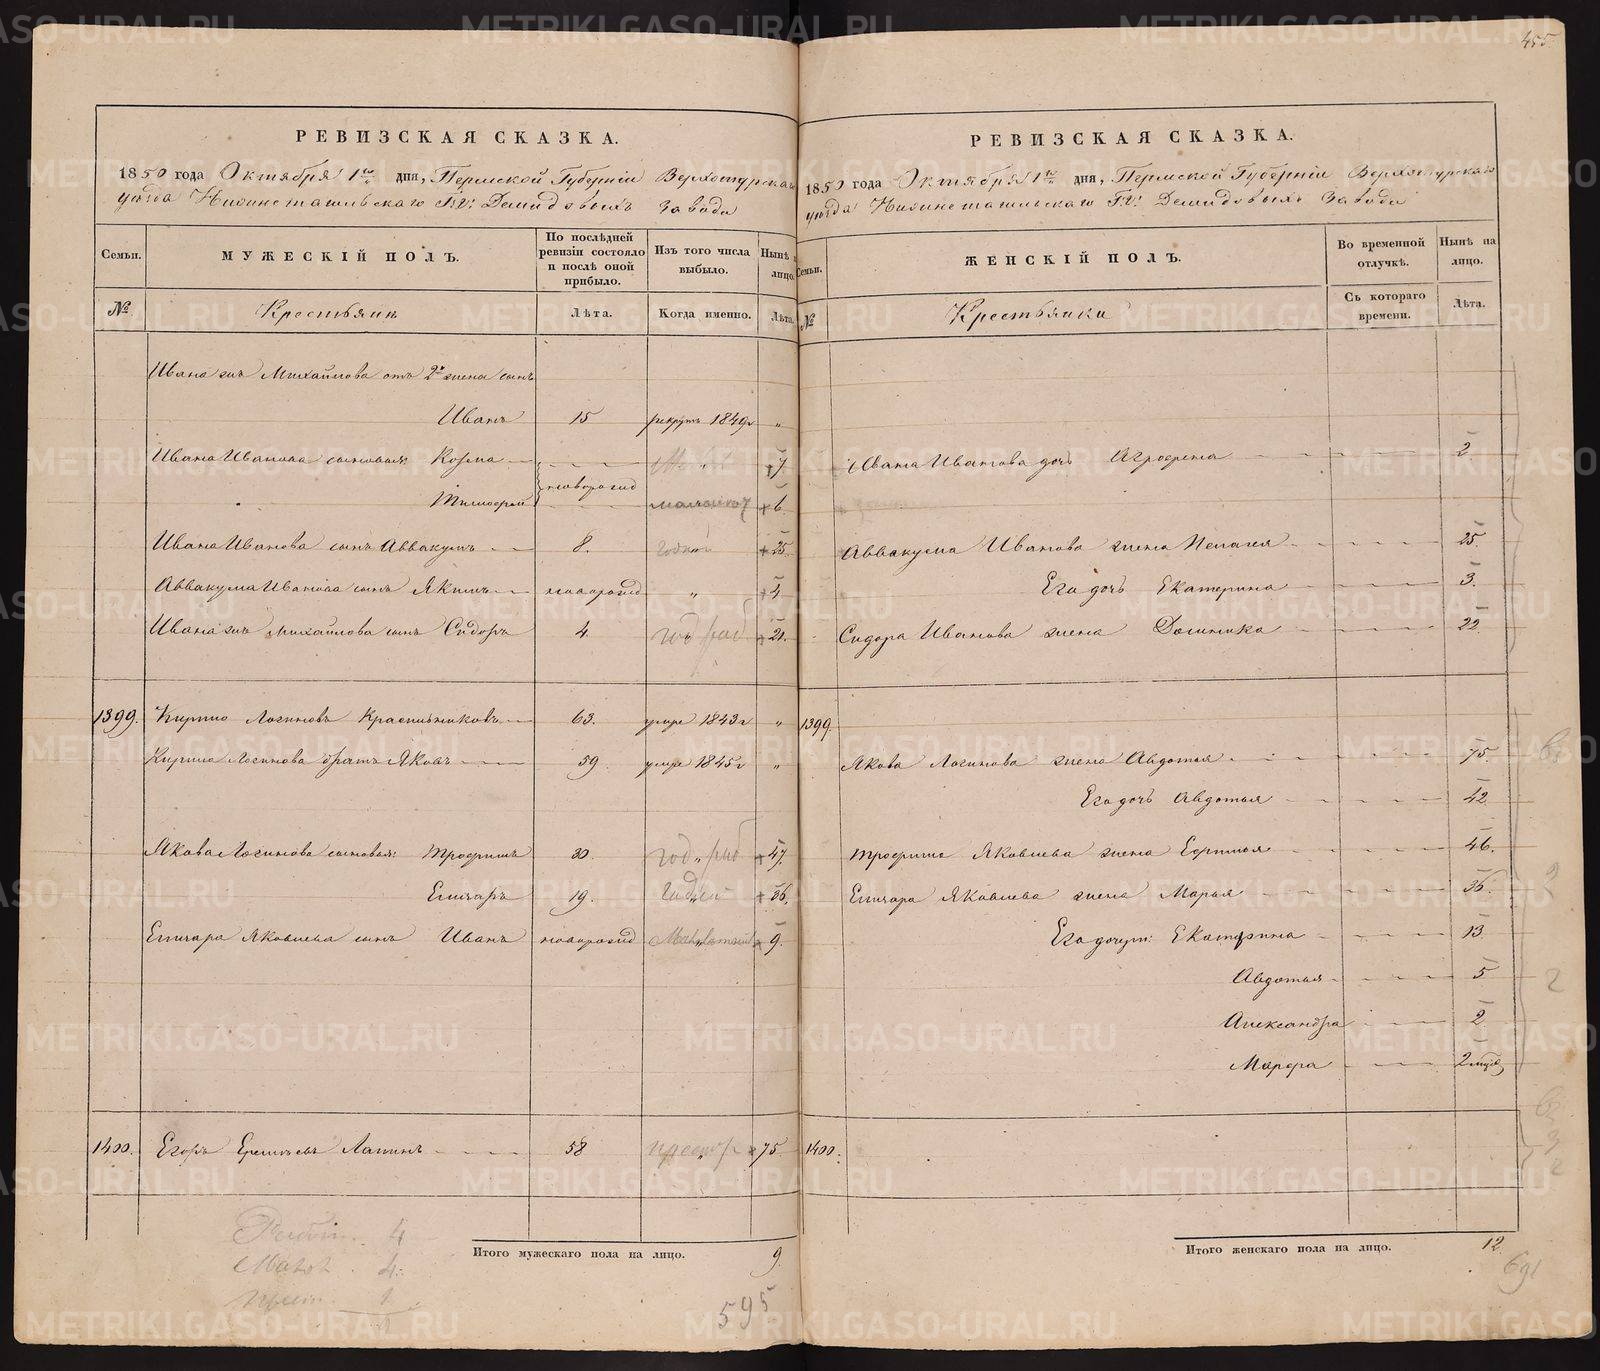 455.
РЕВИЗСКАЯ СКАЗКА.
1850 года Октября 1го дня, Пермской Губерніи Верхотурскаго
уѣзда Нижнетагильскаго Г.Г. Демидовыхъ завода
Семьи.
МУЖЕСКІЙ ПОЛЪ.
По послѣдней ревизіи состояло и послѣ оной прибыло.
Изъ того числа выбыло.
Нынѣ на лицо.
№
Крестьяне
Лѣта.
Когда именно.
Лѣта.
Ивана же Михайлова отъ 2й жены сынъ
Иванъ 15 рекрутъ 1849г "
Ивана Иванова сыновья: Козма 7
новорожд
Тимофей малолѣт 6
Ивана Иванова сынъ Аввакумъ 8. годной 25.
Аввакума Иванова сынъ Якимъ новорожд " 4
Ивана же Михайлова сынъ Сидоръ 4. год раб 21.
1399. Кирило Логиновъ Красильниковъ 63. умре 1843г "
Кирила Логинова братъ Яковъ 59. умре 1845г "
Якова Логинова сыновья: Трофимъ 30. год раб 47.
Елизаръ 19. годной 36.
Елизара Яковлева сынъ Иванъ новорожд Малолѣтной 9.
1400. Егоръ Ермиловъ Лапинъ 58 престар 75
Работн. 4
Малол. 4.
Прест. 1
Итого мужескаго пола на лицо. 9.
595
РЕВИЗСКАЯ СКАЗКА.
1850 года Октября 1го дня, Пермской Губерніи Верхотурскаго
уѣзда Нижнетагильскаго Г.Г. Демидовыхъ завода
Семьи.
ЖЕНСКІЙ ПОЛЪ.
Во временной отлучкѣ.
Нынѣ на лицо.
№
Крестьянки
Съ котораго времени.
Лѣта.
Ивана Иванова дочь Агрофена 2.
Аввакума Иванова жена Пелагея 25.
Его дочь Екатерина 3.
Сидора Иванова жена Домника 22
1399.
Якова Логинова жена Авдотья 75.
Его дочь Авдотья 42
Трофима Яковлева жена Ефимья 46.
Елизара Яковлева жена Марья 36.
Его дочери: Екатерина 13
Авдотья 5
Александра 2
Марфа 2 мѣс.
1400.
Итого женскаго пола на лицо. 12.
691
METRIKI.GASO-URAL.RU